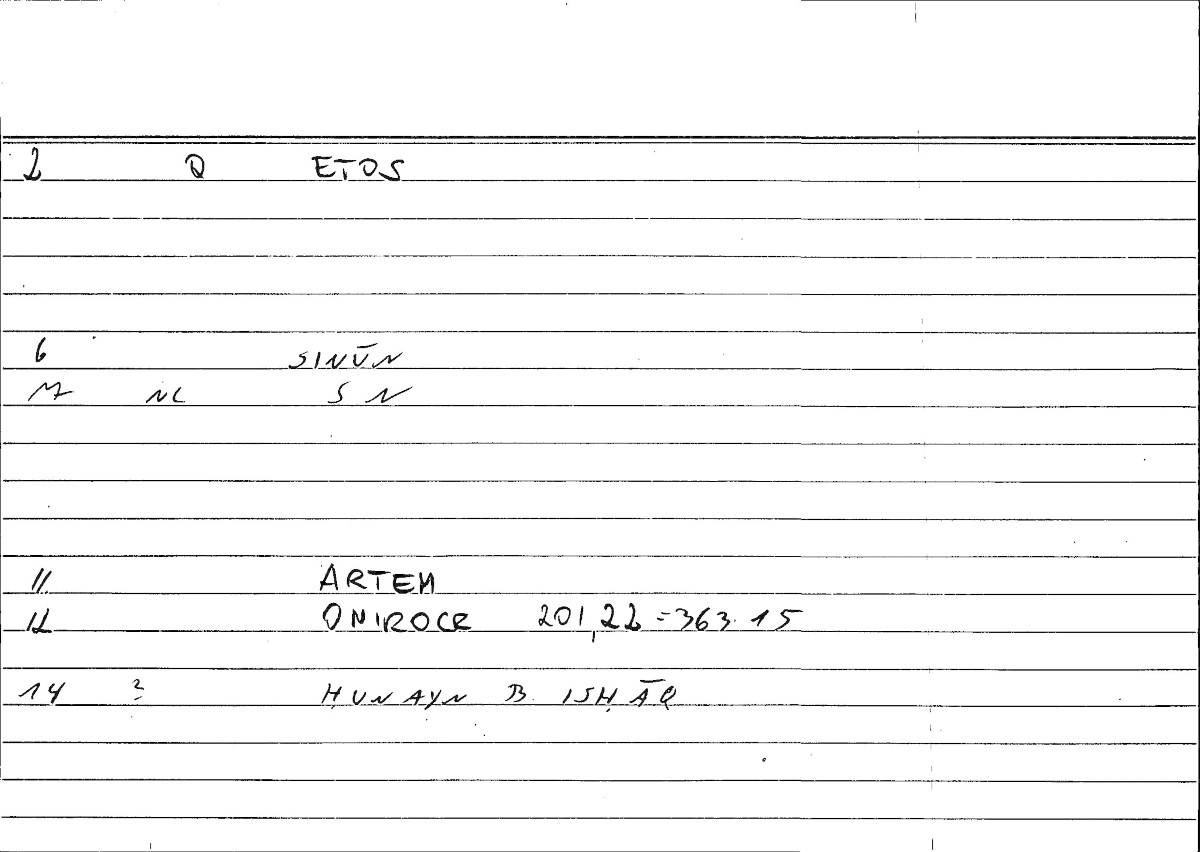 2 Q ETOS
6 SINŪN
7 NC S N
11 ARTEM
12 ONIROCR 201,22=363.15
14 ? ḤUNAYN B. ISḤĀQ